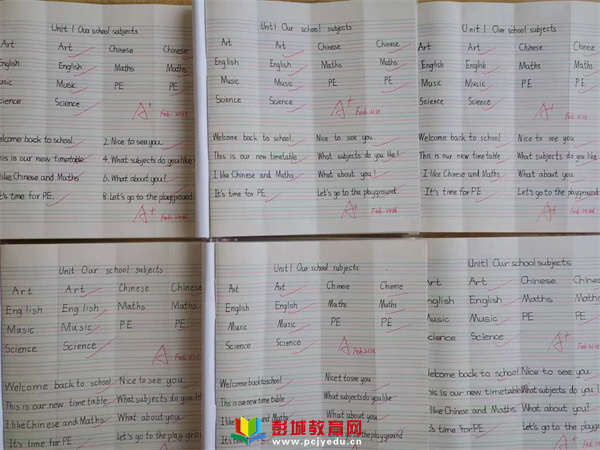 Unit 1 Our school subjects
Art Art Chinese Chinese
English English Maths Maths
Music Music PE PE
Science Science
A+
Welcome back to school. 2. Nice to see you.
This is our new timetable. 4. What subjects do you like
I like Chinese and Maths. 6. What about you?
It's time for PE. 8. Let's go to the playground.
A+
Unit 1 Our school subjects
Art Art Chinese Chinese
English English Maths Maths
Music Music PE PE
Science Science
A+
Welcome back to school. Nice to see you.
This is our new timetable. What subjects do you like?
I like Chinese and Maths. What about you?
It's time for PE. Let's go to the playground.
A+
Unit 1 Our school subjects
Art Art Chinese Chinese
English English Maths Maths
Music Music PE PE
Science Science
A+
Welcome back to school. Nice to see you.
This is our new timetable. What subjects do you like?
I like Chinese and Maths. What about you.
It's time for PE. Let's go to the playground.
A+
Unit Our school subjects
Art Art Chinese Chinese
English English Maths Maths
Music Music PE PE
Science Science
A
Welcome back to school. Nice to see you.
This is our new timetable. What subjects do you like
I like Chinese and Maths. What about you.
It's time for PE. Let's go to the playground
Unit 1 Our school subjects
Art Art Chinese Chinese
English English Maths Maths
Music Music PE PE
Science Science
A
Welcome back to school. Nicet to see you
This is our new timetable. What subjects do you like
I like Chinese and Maths. What about you.
It's time for PE. playground
Unit 1 Our school subjects
Art Art Chinese Chinese
English English Maths Maths
Music Music PE PE
Science Science
A+
Welcome back to school. Nice to see you.
This is our new timetable. What subjects do you
I like Chinese and Maths. What about you?
It's time for PE. Let's go to the playground.
彭城教育网
www.pcjyedu.cn